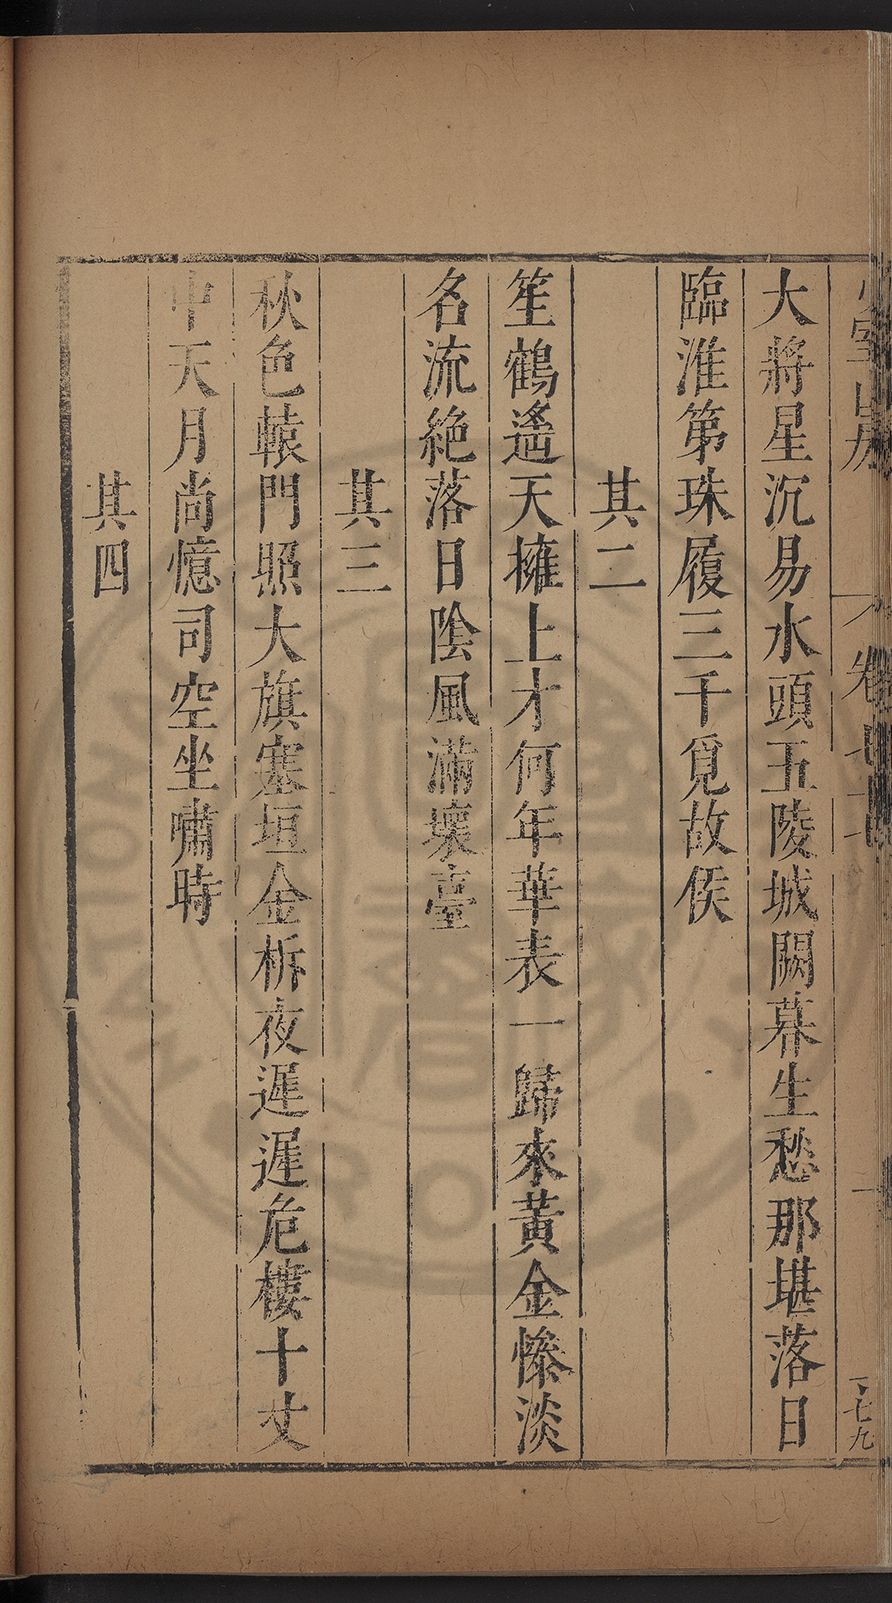 大將星沉易水頭玉陵城闕暮生愁那堪落日
臨淮第珠履三千覓故侯
其二
笙鶴遙天擁上才何年華表一歸來黃金慘淡
名流絶落日陰風滿壞臺
其三
秋色轅門照大旗塞垣金柝夜遲遲危樓十丈
中天月尚憶司空坐嘯時
其四